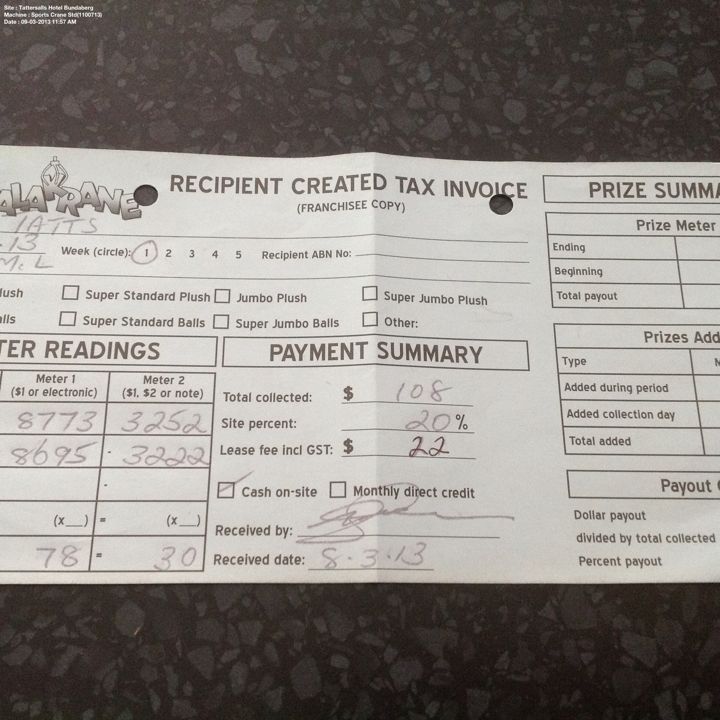 Site : Tattersalls Hotel Bundaberg
Machine : Sports Crane Std(1100713)
Date : 09-03-2013 11:57 AM
ALA KRANE
RECIPIENT CREATED TAX INVOICE
(FRANCHISEE COPY)
TATTS
.13
M.L
Week (circle): 1 2 3 4 5 Recipient ABN No:
lush Super Standard Plush Jumbo Plush Super Jumbo Plush
lls Super Standard Balls Super Jumbo Balls Other:
TER READINGS
Meter 1 Meter 2
($1 or electronic) ($1, $2 or note)
8773 3252
8695 - 3222
-
(x__) = (x__)
78 = 30
PAYMENT SUMMARY
Total collected: $ 108
Site percent: 20%
Lease fee incl GST: $ 22
Cash on-site Monthly direct credit
Received by:
Received date: 8.3.13
PRIZE SUMMA
Prize Meter
Ending
Beginning
Total payout
Prizes Add
Type N
Added during period
Added collection day
Total added
Payout
Dollar payout
divided by total collected
Percent payout